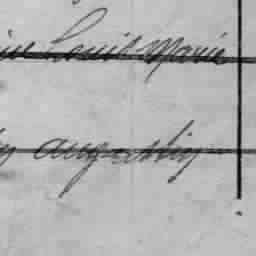 Louis Marie
augustin